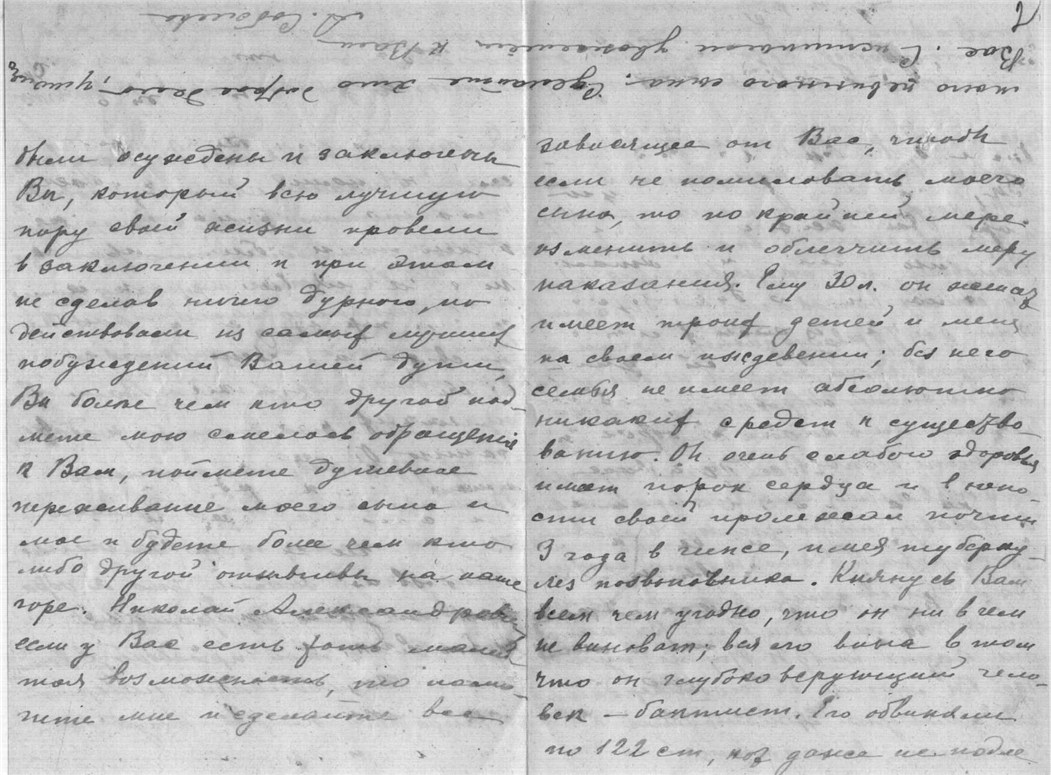 были осуждены и заключены
Вы, который всю лучшую
пору своей жизни провели
в заключении и при этом
не сделав ничего дурного, но
действовали из самых лучших
побуждений Вашей души,
Вы более чем кто другой пой-
мете мою смелость обращения
к Вам, поймете душевное
переживание моего сына и
мое и будете более чем кто
либо другой отзывчивы на наше
горе. Николай Александрович
если у Вас есть хоть малей
шая возможность, то помо-
гите мне и сделайте все
зависящее от Вас, чтобы
если не помиловать моего
сына, то по крайней мере
изменить и облегчить меру
наказания. Ему 30 л. он женат,
имеет троих детей и меня
на своем иждевении; без него
семья не имеет абсолютно
никаких средст к существо
ванию. Он очень слабого здоровья
имеет порок сердца и в юно-
сти своей пролежал почти
3 года в гипсе, имея туберку
лез позвоночника. Клянусь Вам
всем чем угодно, что он ни в чем
не виноват; вся его вина в том
что он глубоко верующий чело-
век – баптист. Его обвиняли
по 122 ст, но даже не
моего невинного сына. Сделайте это доброе дело,
Вас. С истинным уважением к Вам